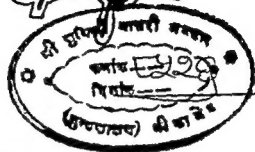 श्री जुबिली नागरी भण्डार
क्रमांक
दिनांक
(पुस्तकालय) बीकानेर